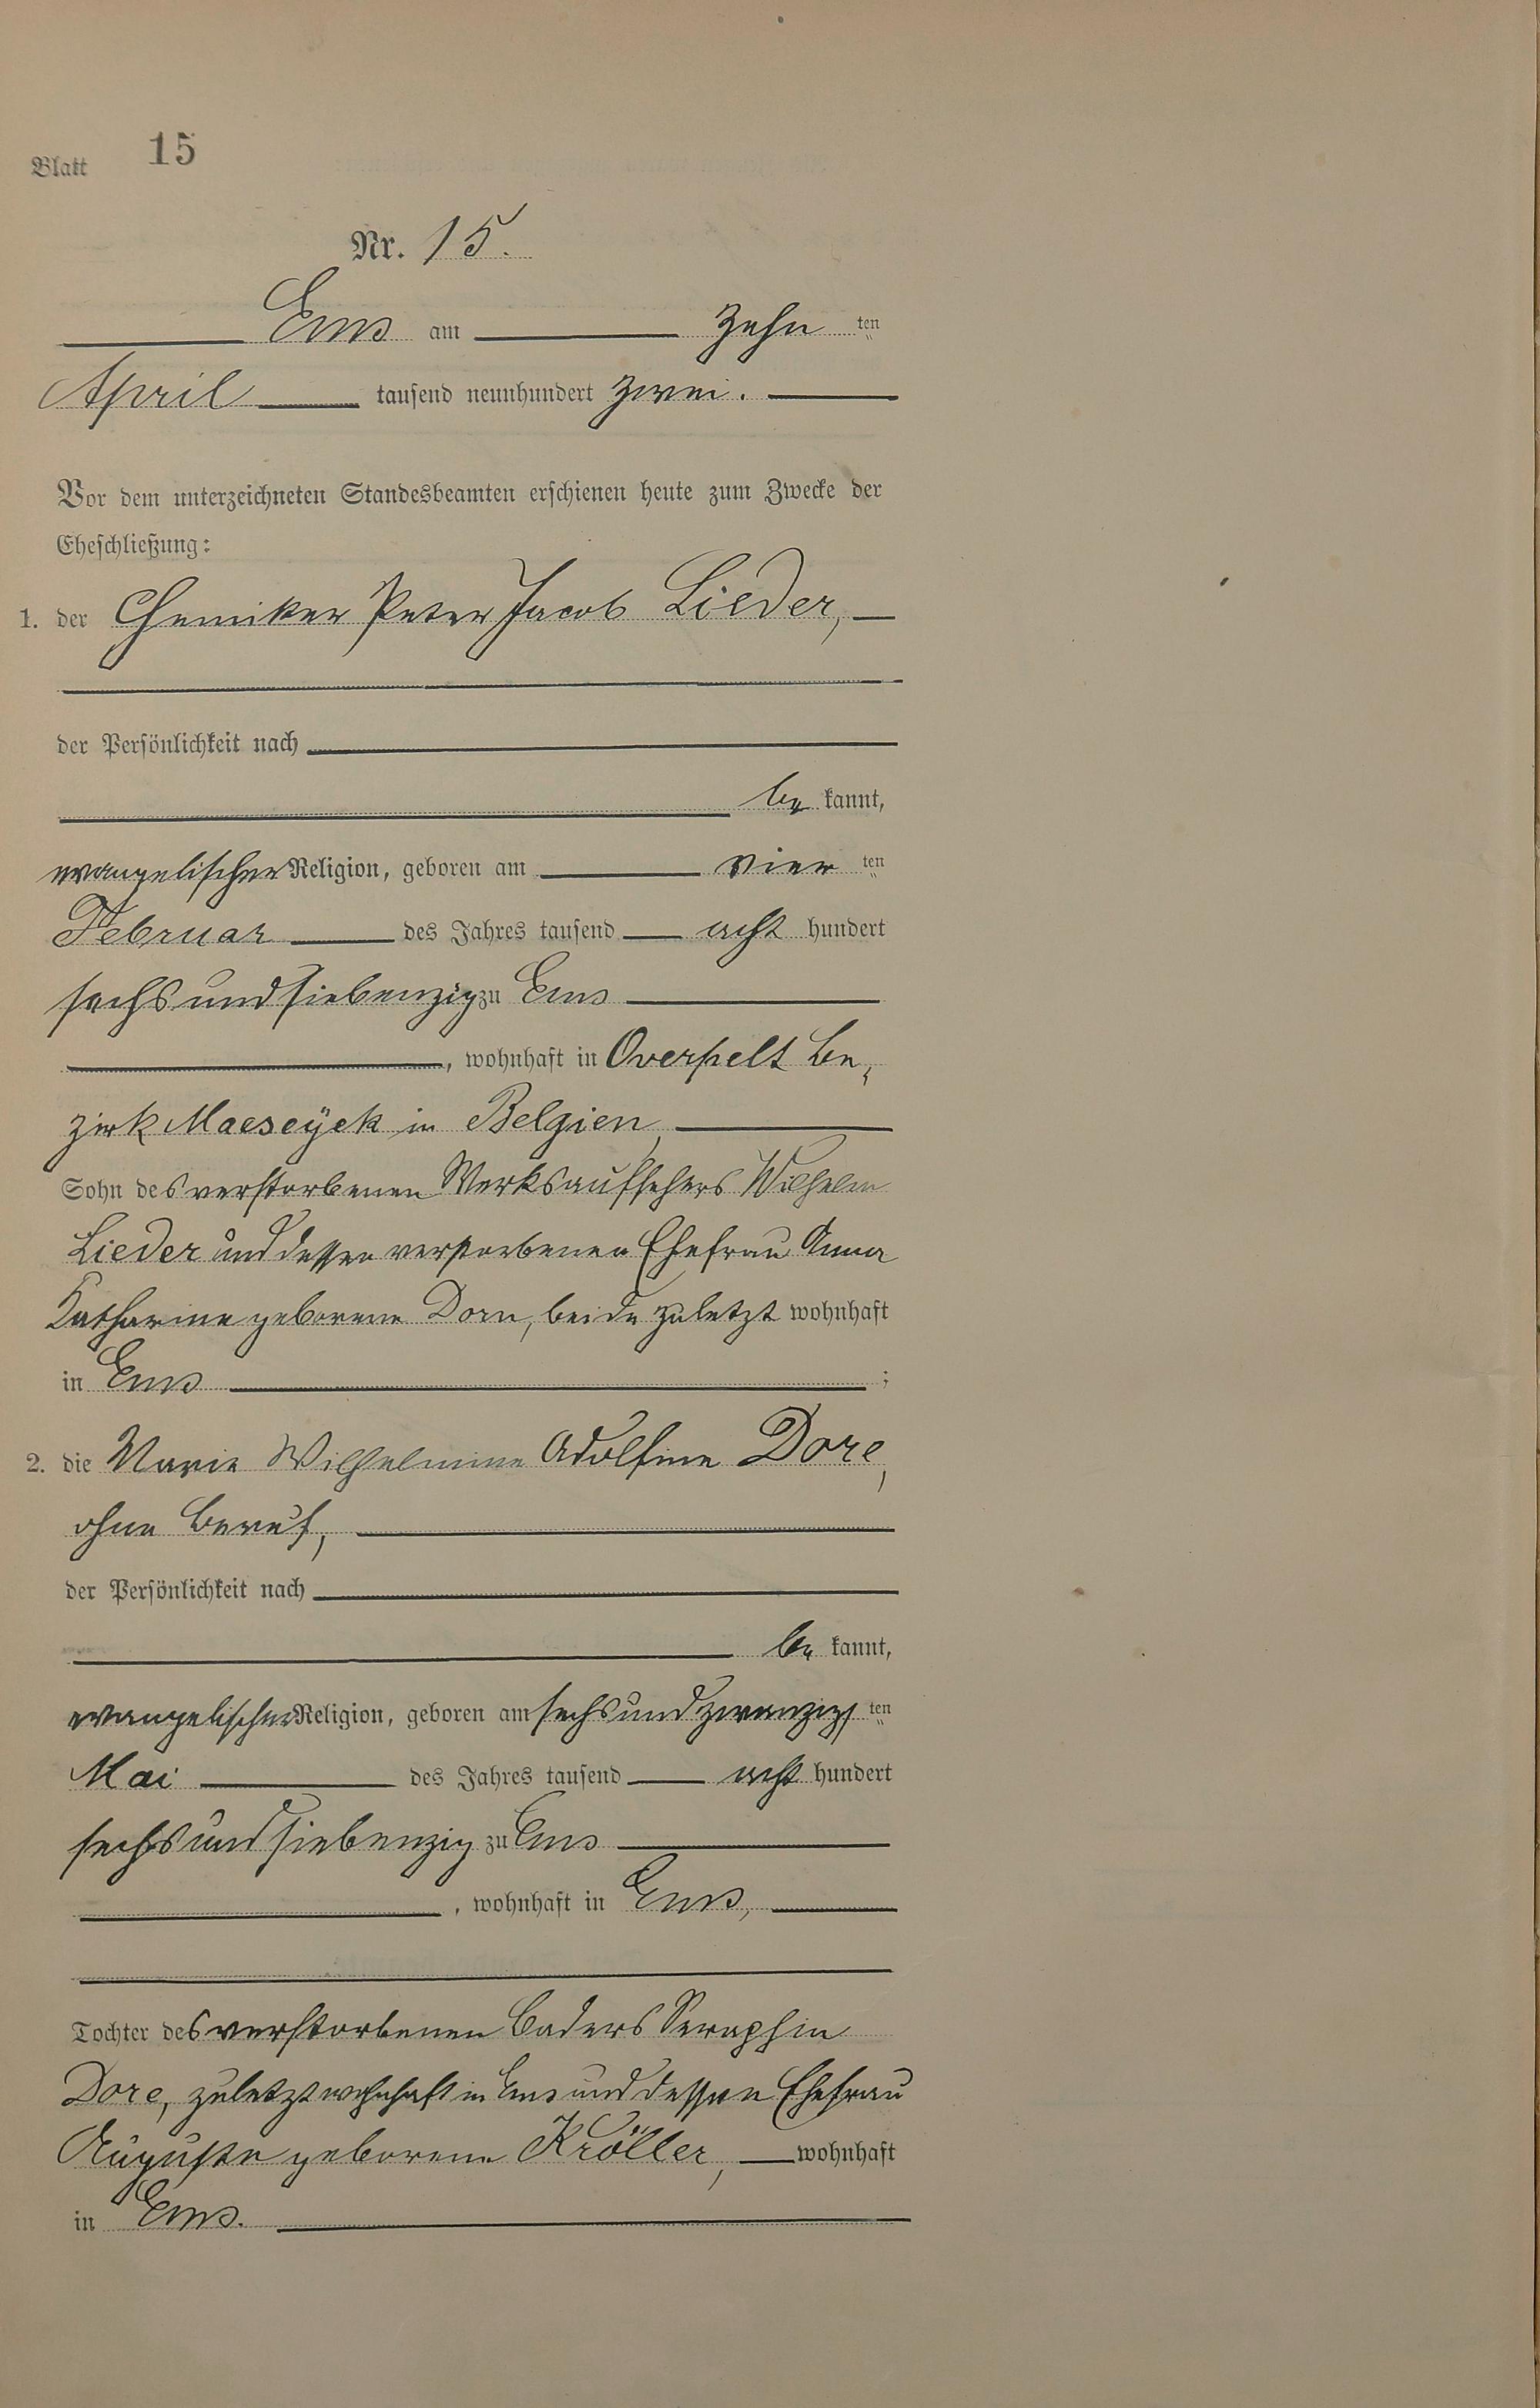 Blatt 15
Nr. 15.
Ems am zehn ten
April tausend neunhundert zwei.
Vor dem unterzeichneten Standesbeamten erschienen heute zum Zwecke der
Eheschließung:
1. der Chemiker Peter Jacob Lieder,
der Persönlichkeit nach
be kannt,
evangelischer Religion, geboren am vier ten
Februar des Jahres tausend acht hundert
sechs und siebenzig zu Ems
, wohnhaft in Overpelt Be-
zirk Maeseyck in Belgien,
Sohn des verstorbenen Werksaufsehers Wilhelm
Lieder und dessen verstorbenen Ehefrau Anna
Katharine geborene Dorn, beide zuletzt wohnhaft
in Ems ;
2. die Marie Wilhelmine Adolfine Dore,
ohne Beruf,
der Persönlichkeit nach
be kannt,
evangelischer Religion, geboren am sechs und zwanzigs ten
Mai des Jahres tausend acht hundert
sechs und siebenzig zu Ems
, wohnhaft in Ems,
Tochter des verstorbenen Baders Seraphin
Dore, zuletzt wohnhaft in Ems und dessen Ehefrau
Auguste geborene Kröller, wohnhaft
in Ems.